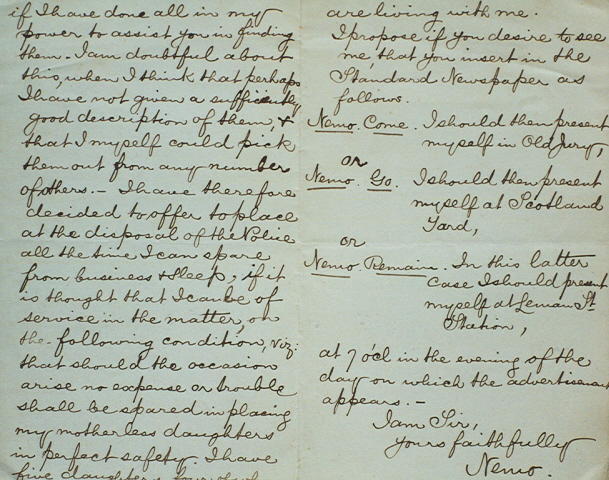 if I have done all in my
power to assist you in finding
them. I am doubtful about
this, when I think that perhaps
I have not given a sufficiently
good description of them, &
that I myself could pick
them out from any number
of others. – I have therefore
decided to offer to place
at the disposal of the Police
all the time I can spare
from business & sleep; if it
is thought that I can be of
service in the matter, on
the following condition, viz:
that should the occasion
arise no expense or trouble
shall be spared in placing
my motherless daughters
in perfect safety. I have
five daughters, four of
are living with me.
I propose if you desire to see
me, that you insert in the
Standard Newspaper as
follows.
Nemo. Come. I should then present
myself in Old Jury,
or
Nemo. Go. I should then present
myself at Scotland
Yard,
or
Nemo. Remain. In this latter
case I should present
myself at Leman St
Station,
at 7 o'cl in the evening of the
day on which the advertisement
appears. –
I am Sir,
yours faithfully
Nemo.